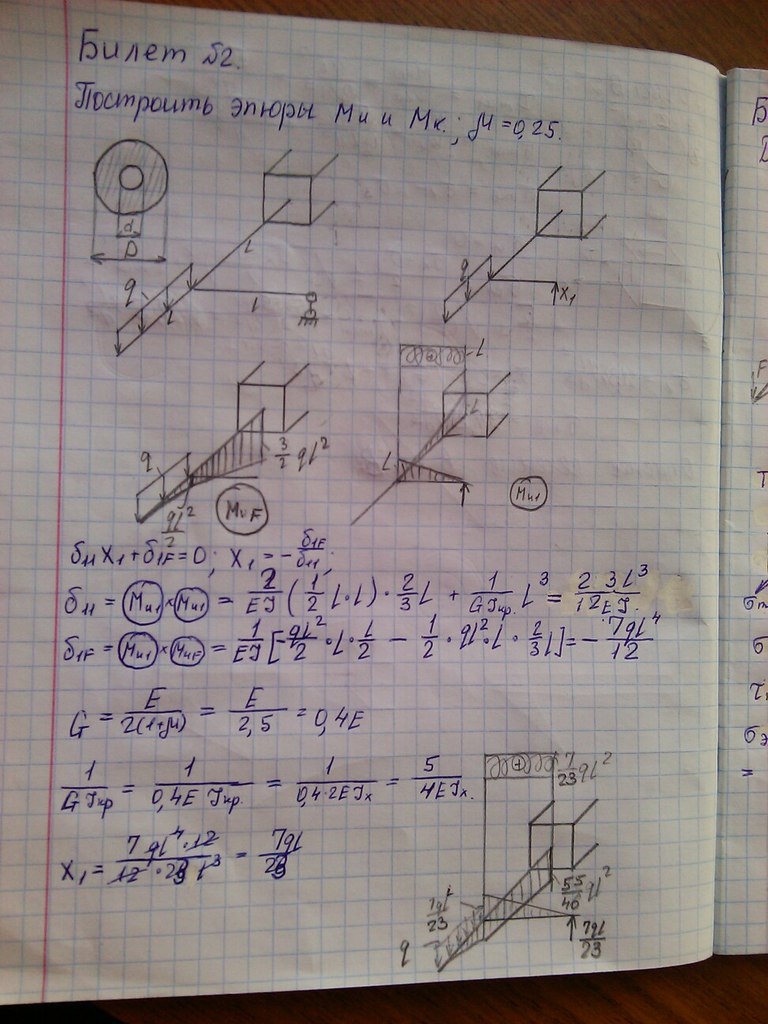 Билет №2.
Построить эпюры Mи и Mк.; μ=0,25.
d
D
q
l
l
l
q
X₁
q
3/2 ql²
ql²/2
MиF
l
l
l
Mи1
δ₁₁X₁+δ₁F=0; X₁=-δ₁F/δ₁₁;
δ₁₁ = Mи1×Mи1 = 2/EJ (1/2 l·l)·2/3 l + 1/GJкр. l³ = 23l³/12EJ.
δ₁F = Mи1×MиF = 1/EJ [-ql²/2·l·l/2 - 1/2·ql²·l·2/3 l] = -7ql⁴/12
G = E/2(1+μ) = E/2,5 = 0,4E
1/GJкр = 1/0,4E Jкр. = 1/0,4·2EJx = 5/4EJx.
X₁ = 7ql⁴·12/12·23 l³ = 7ql/23
7/23 ql²
55/46 ql²
7ql²/23
7ql/23
q
Б
F
Т
σ
σ
=